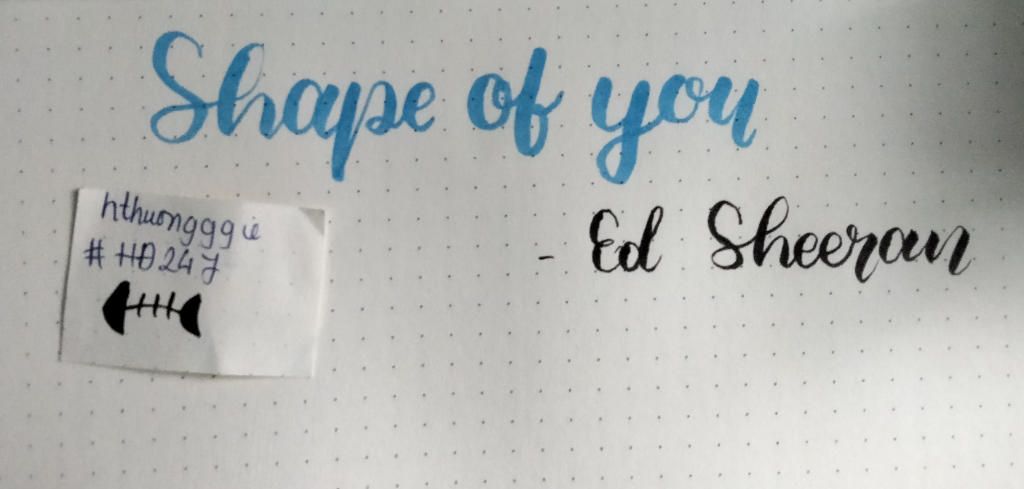 Shape of you
- Ed Sheeran
hthuongggie
#HĐ247